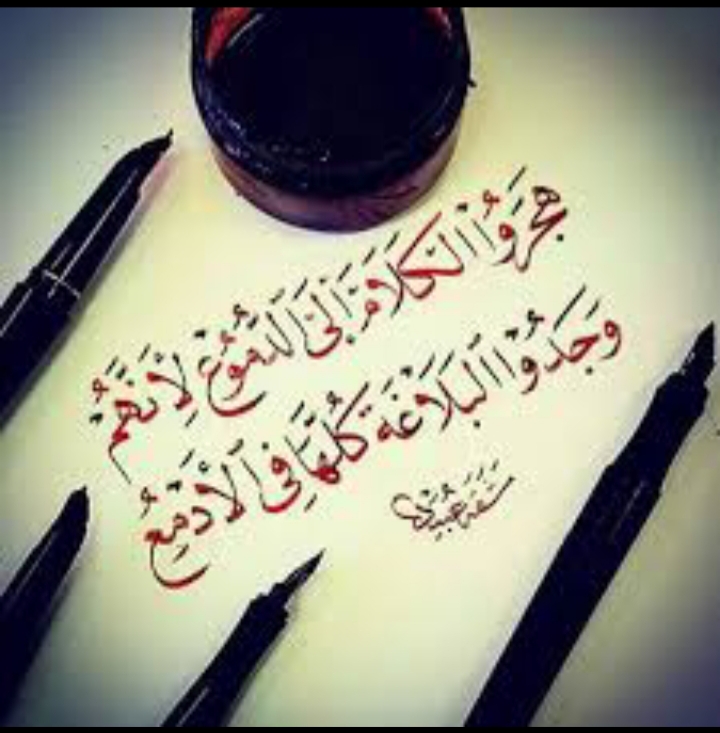 هَجَرُوا الْكَلَامَ إِلَى الدُّمُوعِ لِأَنَّهُمْ
وَجَدُوا الْبَلَاغَةَ كُلَّهَا فِي الْأَدْمُعِ